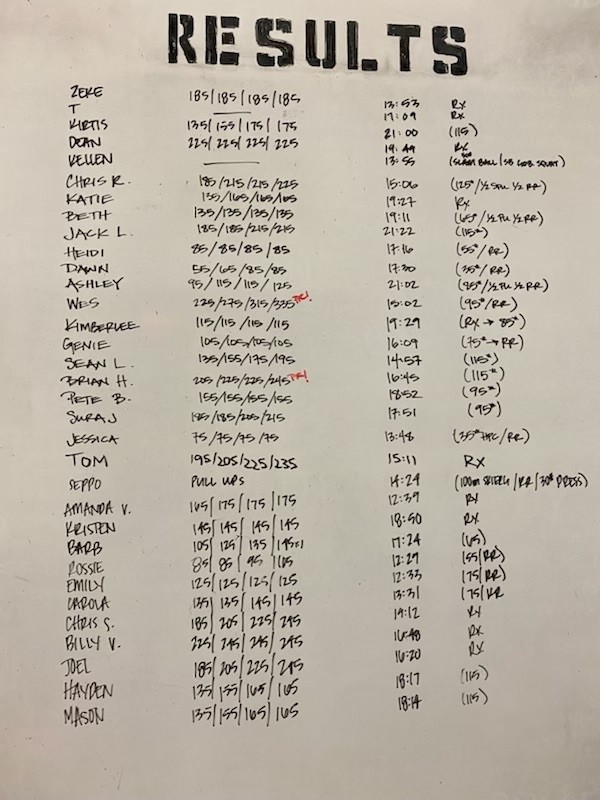 RESULTS
ZEKE 185/185/185/185 13:53 RX
T —— 17:09 RX
KIRTIS 135/155/175/175 21:00 (115)
DEAN 225/225/225/225 19:49 RX
KELLEN —— 13:55 (SLAM BALL/
CHRIS R. 185/215/215/225 15:06 (125#/½ SPU ½ RR)
KATIE 135/165/165/165 19:27 RX
BETH 135/135/135/135 19:11 (65#/½ PU ½ RR)
JACK L. 185/185/215/215 21:22 (115#)
HEIDI 85/85/85/85 17:16 (55#/RR)
DAWN 55/65/85/85 17:30 (35#/RR)
ASHLEY 95/115/115/125 21:02 (85#/½ PU ½ RR)
WES 225/275/315/335 PR! 15:02 (95#/RR)
KIMBERLEE 115/115/115/115 19:29 (RX → 85#)
GENIE 105/105/105/105 16:09 (75# → RR)
SEAN L. 135/155/175/195 14:57 (115#)
BRIAN H. 205/225/225/245 PR! 16:45 (115#)
PETE B. 155/155/155/155 18:52 (95#)
SURAJ 185/185/205/215 17:51 (95#)
JESSICA 75/75/75/75 13:48 (35# HPC/RR)
TOM 195/205/225/235 15:11 RX
SEPPO PULL UPS 14:29 (100m SKIERG/RR/30# PRESS)
AMANDA V. 165/175/175/175 12:39 RX
KRISTEN 145/145/145/145 18:50 RX
BARB 105/125/135/145x1 17:24 (65)
ROSSIE 85/85/95/105 12:29 (55/RR)
EMILY 125/125/125/125 12:33 (75/RR)
CAROLA 135/135/145/145 13:31 (75/RR
CHRIS S. 185/205/225/245 19:12 RX
BILLY V. 225/245/245/245 16:48 RX
JOEL 185/205/225/245 16:20 RX
HAYDEN 135/155/165/165 18:17 (115)
MASON 135/155/165/165 18:14 (115)